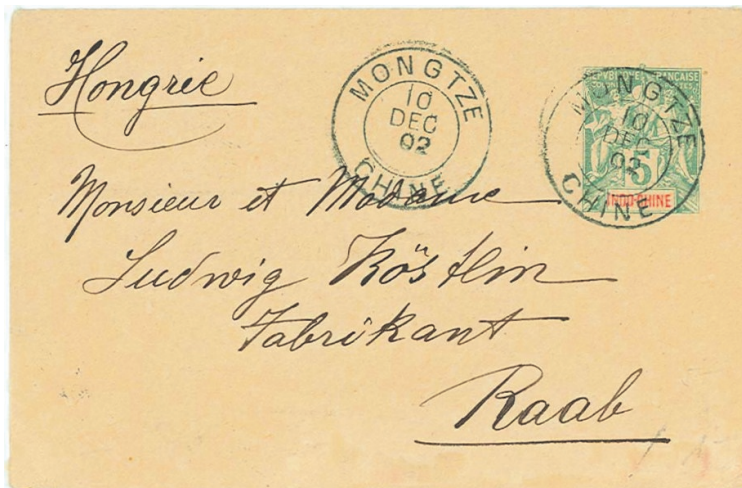 Hongrie
MONGTZE
10
DEC
02
CHINE
REPUBLIQUE FRANCAISE
MONGTZE
10
DEC
02
CHINE
5
INDO-CHINE
Monsieur et Madame
Ludwig Köstlin
Fabrikant
Raab